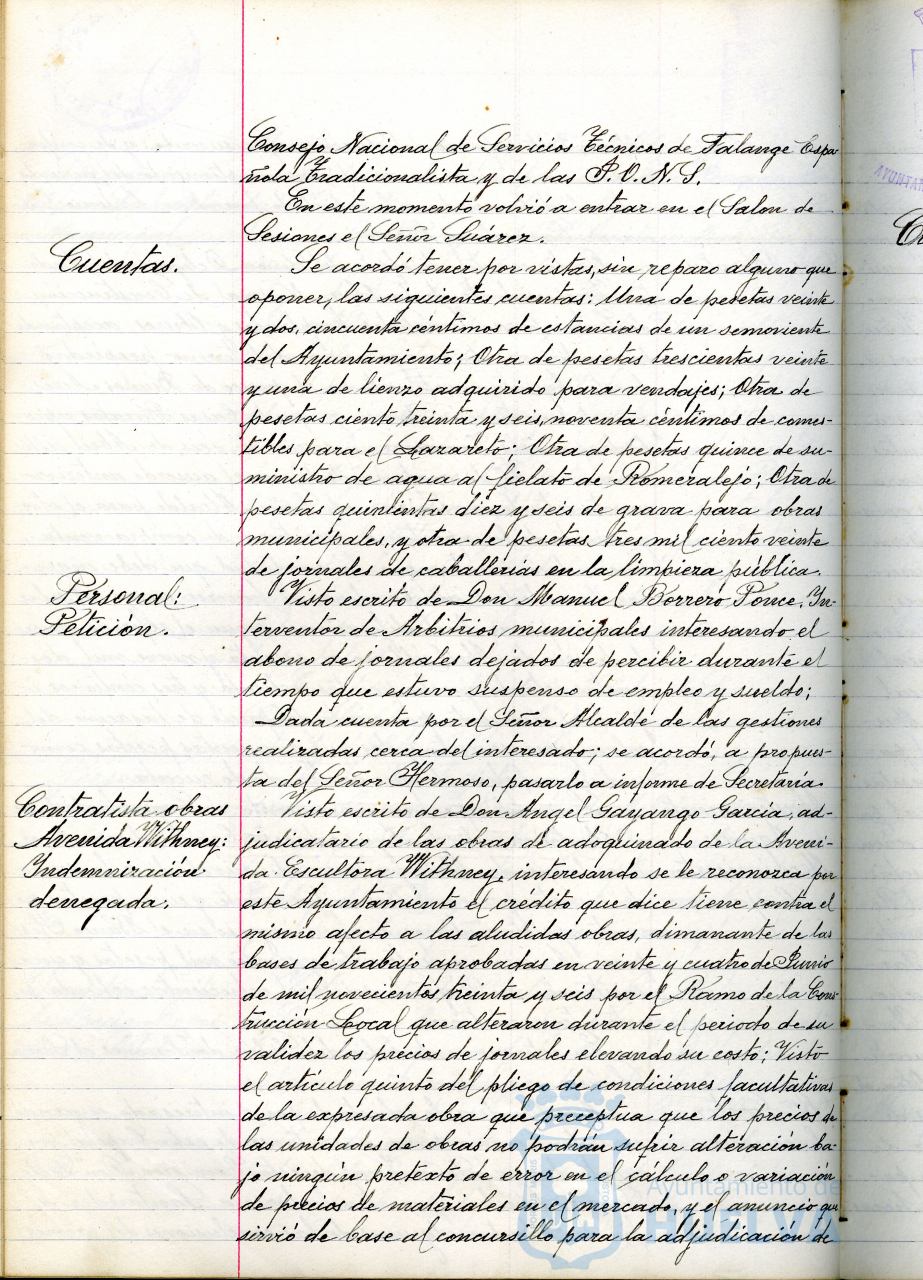 Consejo Nacional de Servicios Técnicos de Falange Espa
ñola Tradicionalista y de las J. O. N. S.
En este momento volvió a entrar en el Salon de
Sesiones el Señor Suárez.
Cuentas.
Se acordó tener por vistas, sin reparo alguno que
oponer, las siguientes cuentas: Una de pesetas veinte
y dos, cincuenta céntimos de estancias de un semoviente
del Ayuntamiento; Otra de pesetas trescientas veinte
y una de lienzo adquirido para vendajes; Otra de
pesetas ciento treinta y seis, noventa céntimos de comes-
tibles para el Lazareto; Otra de pesetas quince de su-
ministro de agua al fielato de Romeralejo; Otra de
pesetas quinientas diez y seis de grava para obras
municipales, y otra de pesetas tres mil ciento veinte
de jornales de caballerías en la limpieza pública.
Personal:
Petición.
Visto escrito de Don Manuel Borrero Ponce, In-
terventor de Arbitrios municipales interesando el
abono de jornales dejados de percibir durante el
tiempo que estuvo suspenso de empleo y sueldo;
Dada cuenta por el Señor Alcalde de las gestiones
realizadas cerca del interesado; se acordó, a propues-
ta del Señor Hermoso, pasarlo a informe de Secretaría.
Contratista obras
Avenida Withney:
Indemnización
denegada.
Visto escrito de Don Angel Gayango García, ad-
judicatario de las obras de adoquinado de la Aveni-
da Escultora Withney, interesando se le reconozca por
este Ayuntamiento el crédito que dice tiene contra el
mismo afecto a las aludidas obras, dimanante de las
bases de trabajo aprobadas en veinte y cuatro de Junio
de mil novecientos treinta y seis por el Ramo de la Cons-
trucción Local que alteraron durante el periodo de su
validez los precios de jornales elevando su costo; Visto
el artículo quinto del pliego de condiciones facultativas
de la expresada obra que preceptua que los precios de
las unidades de obras no podrán sufrir alteración ba-
jo ningún pretexto de error en el cálculo o variación
de precios de materiales en el mercado, y el anuncio que
sirvió de base al concursillo para la adjudicación de
Ayuntamiento de
HUELVA